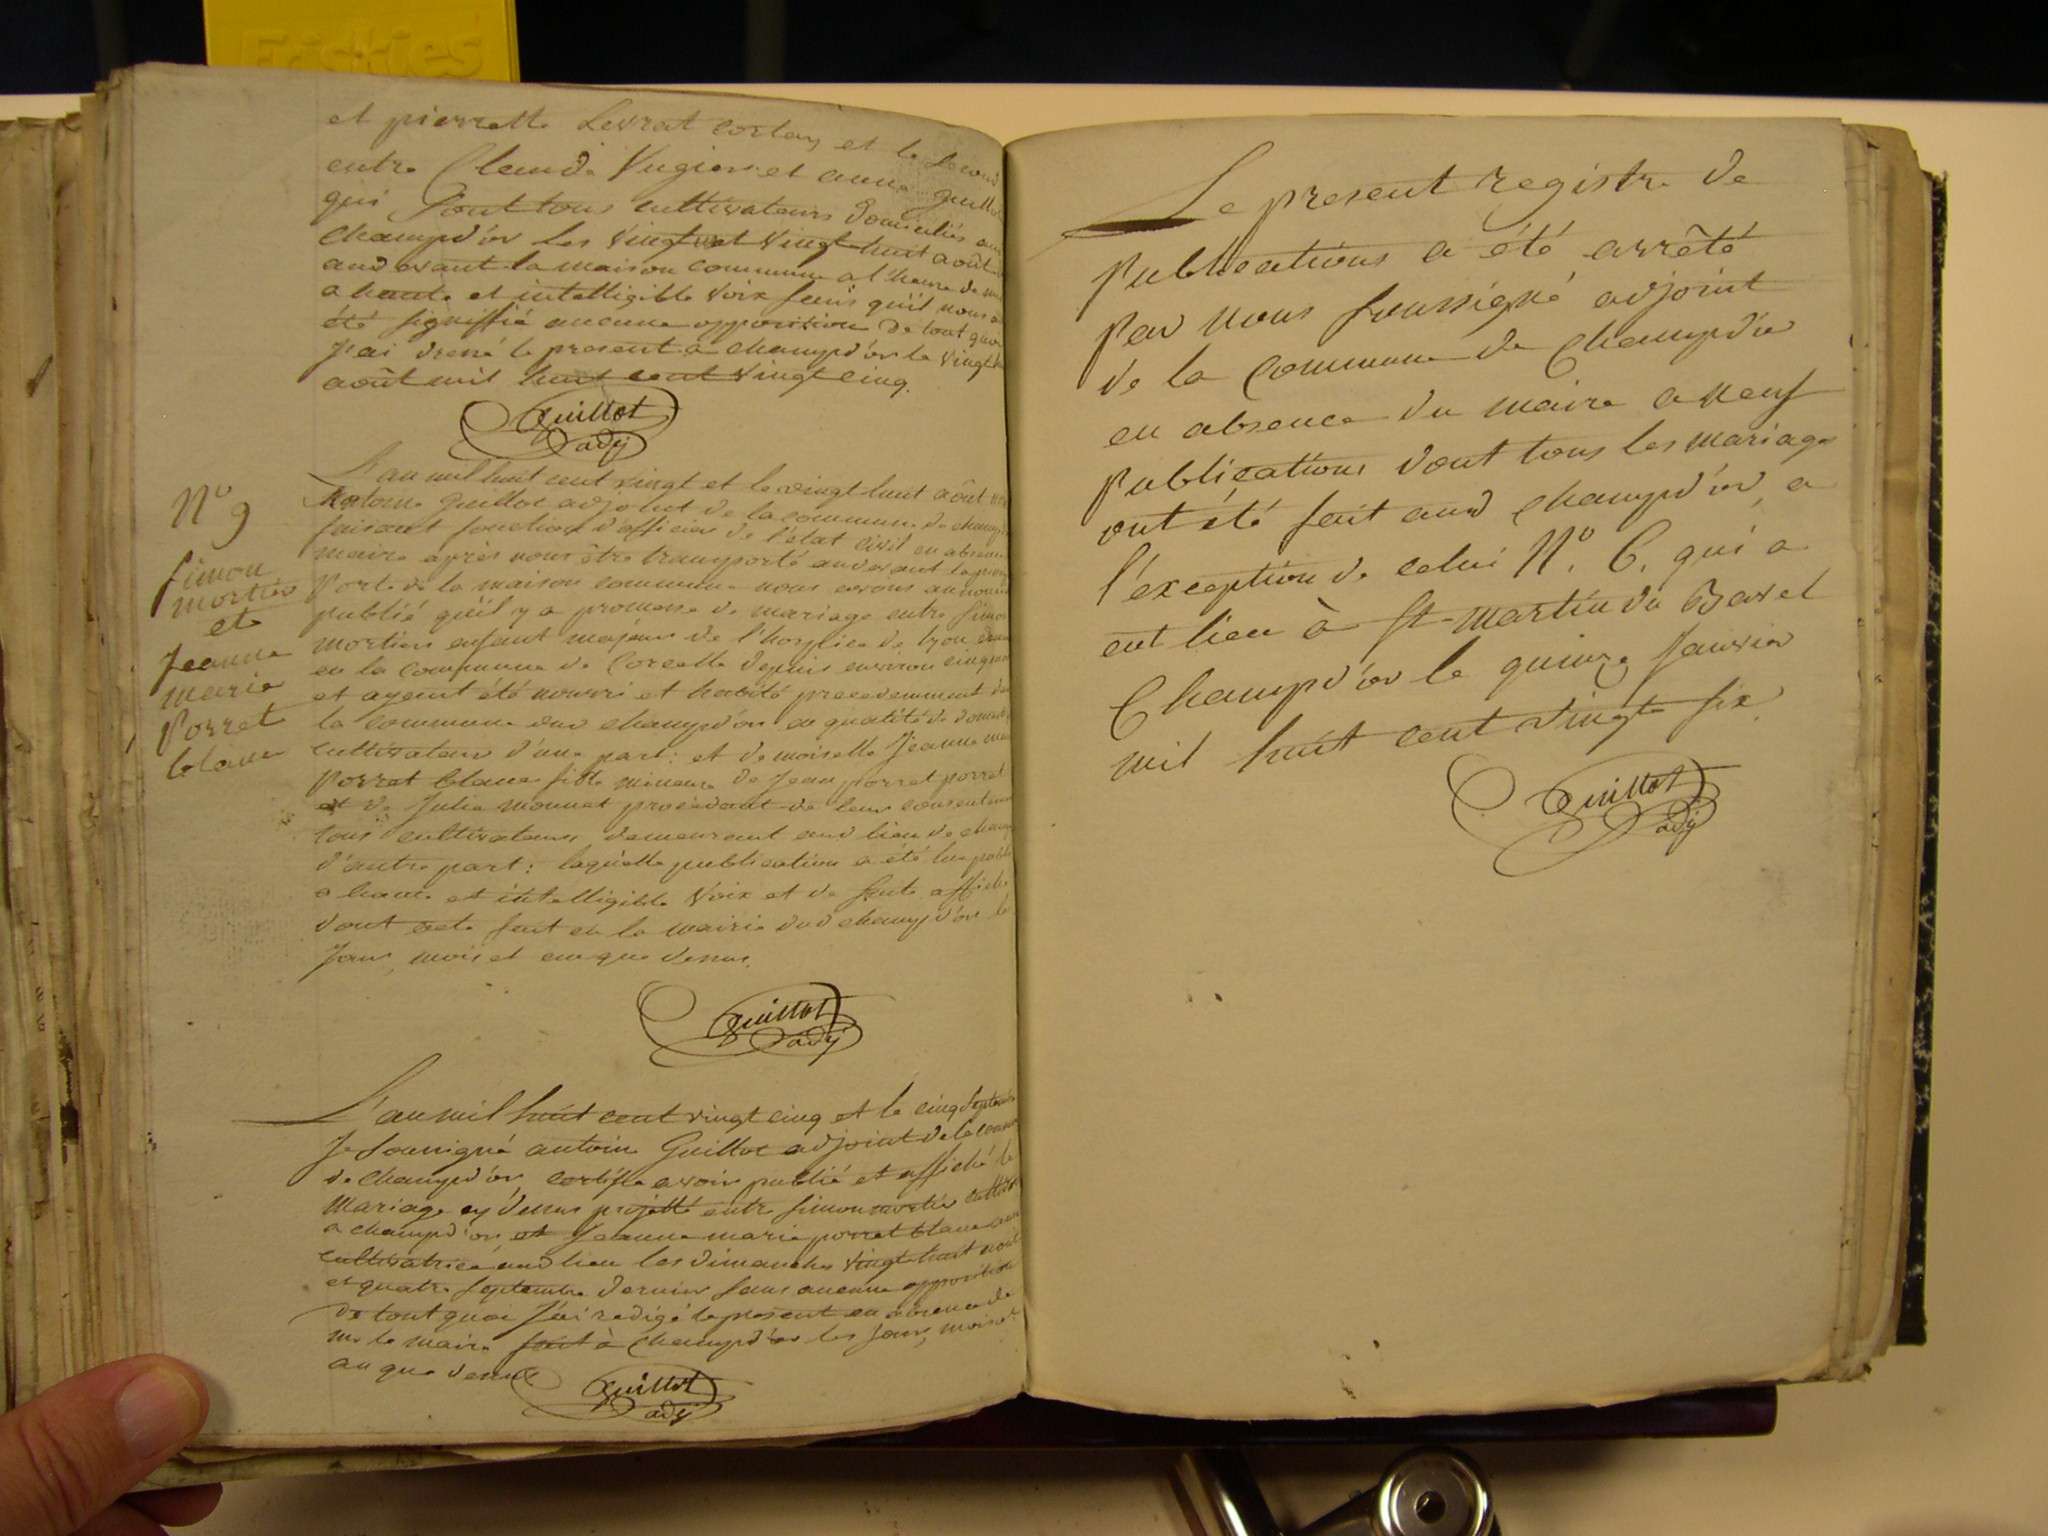 Friskies
et pierrette Levrat corlay et le second
entre Claude Vugier et anne guillot
qui sont tous cultivateurs domiciliés aud
champd'or les vingt et vingt huit août
aud avant la maison commune a l'heure de
a haute et intelligible voix sans qu'il nous a
été signiffié aucune opposition de tout quoi
j'ai dressé le present a champd'or le vingt
août mil huit cent vingt cinq.
Guillot
adj
N° 9
Simon
mortier
et
Jeanne
marie
Porret
blanc
L'an mil huit cent vingt et le vingt huit août
Antoine Guillot adjoint de la commune de champ
faisant fonction d'officier de l'état civil en absence
maire après nous être transporté audevant la
Porte de la maison commune nous avons annoncé
publié qu'il y a promesse de mariage entre Simon
mortier enfant majeur de l'hospice de lyon
en la commune de Corcelle depuis environ cinq
et ayant été nourri et habité precedemment
la commune dud champd'or en qualité de
cultivateur d'une part: et demoiselle Jeanne
Porret blanc fille mineure de Jean porret porret
et de Julie monnet procédant de leur consentement
tous cultivateurs demeurant aud lieu de
d'autre part: laquelle publication a été lue
a haute et intelligible voix et de suite affiché
dont acte fait en la mairie dud champd'or le
Jour, mois et an que dessus.
Guillot
adj
L'an mil huit cent vingt cinq et le cinq septembre
Je soussigné antoine Guillot adjoint de la commune
de Champd'or, certifie avoir publié et affiché le
Mariage cy dessus projetté entre simon mortier
a champd'or et Jeanne marie porret blanc
cultivatrice aud lieu les dimanches vingt huit août
et quatre septembre dernier sans aucune opposition
de tout quoi j'ai redigé le present en absence de
mr le maire fait à Champd'or les jour, mois et
an que dessus
Guillot
adj
Le present registre de
Publications a été arrêté
Par nous soussigné adjoint
de la Commune de Champd'or
en absence du maire a neuf
Publications dont tous les mariages
ont été fait aud champd'or, a
l'exception de celui N°. 6. qui a
eut lieu à St-martin du
Champd'or le quinze Janvier
mil huit cent vingt six
Guillot
adj